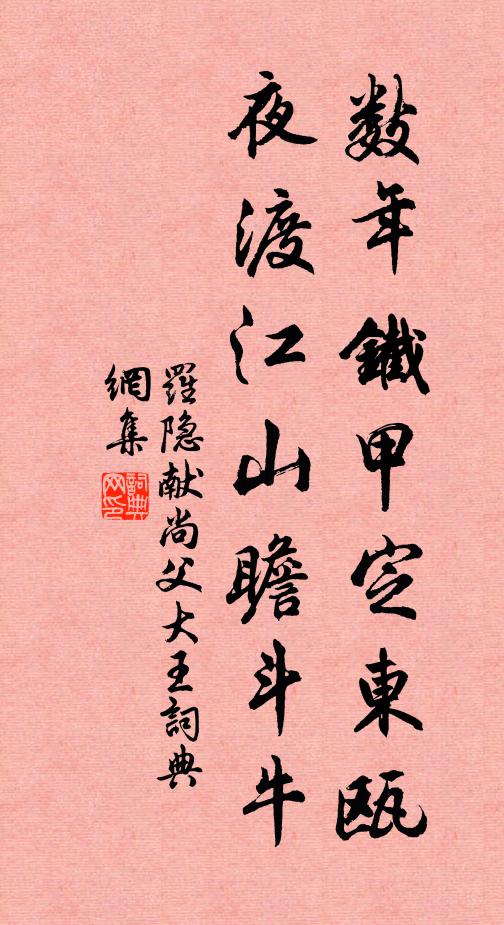 数年鐵甲定東甌
夜渡江山瞻斗牛
羅隐献尚父大王詞典
網集
詞典
网印